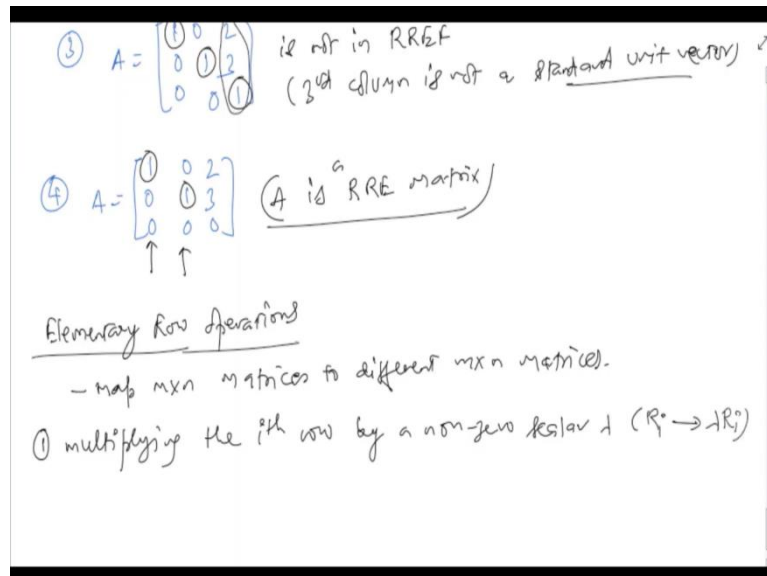 ③ A = [1 0 2; 0 1 3; 0 0 1] is not in RREF
(3rd column is not a standard unit vector)
④ A = [1 0 2; 0 1 3; 0 0 0] (A is a RRE matrix)
↑ ↑
Elementary Row Operations
- map mxn matrices to different mxn matrices.
① multiplying the ith row by a non-zero scalar λ (Ri → λRi)